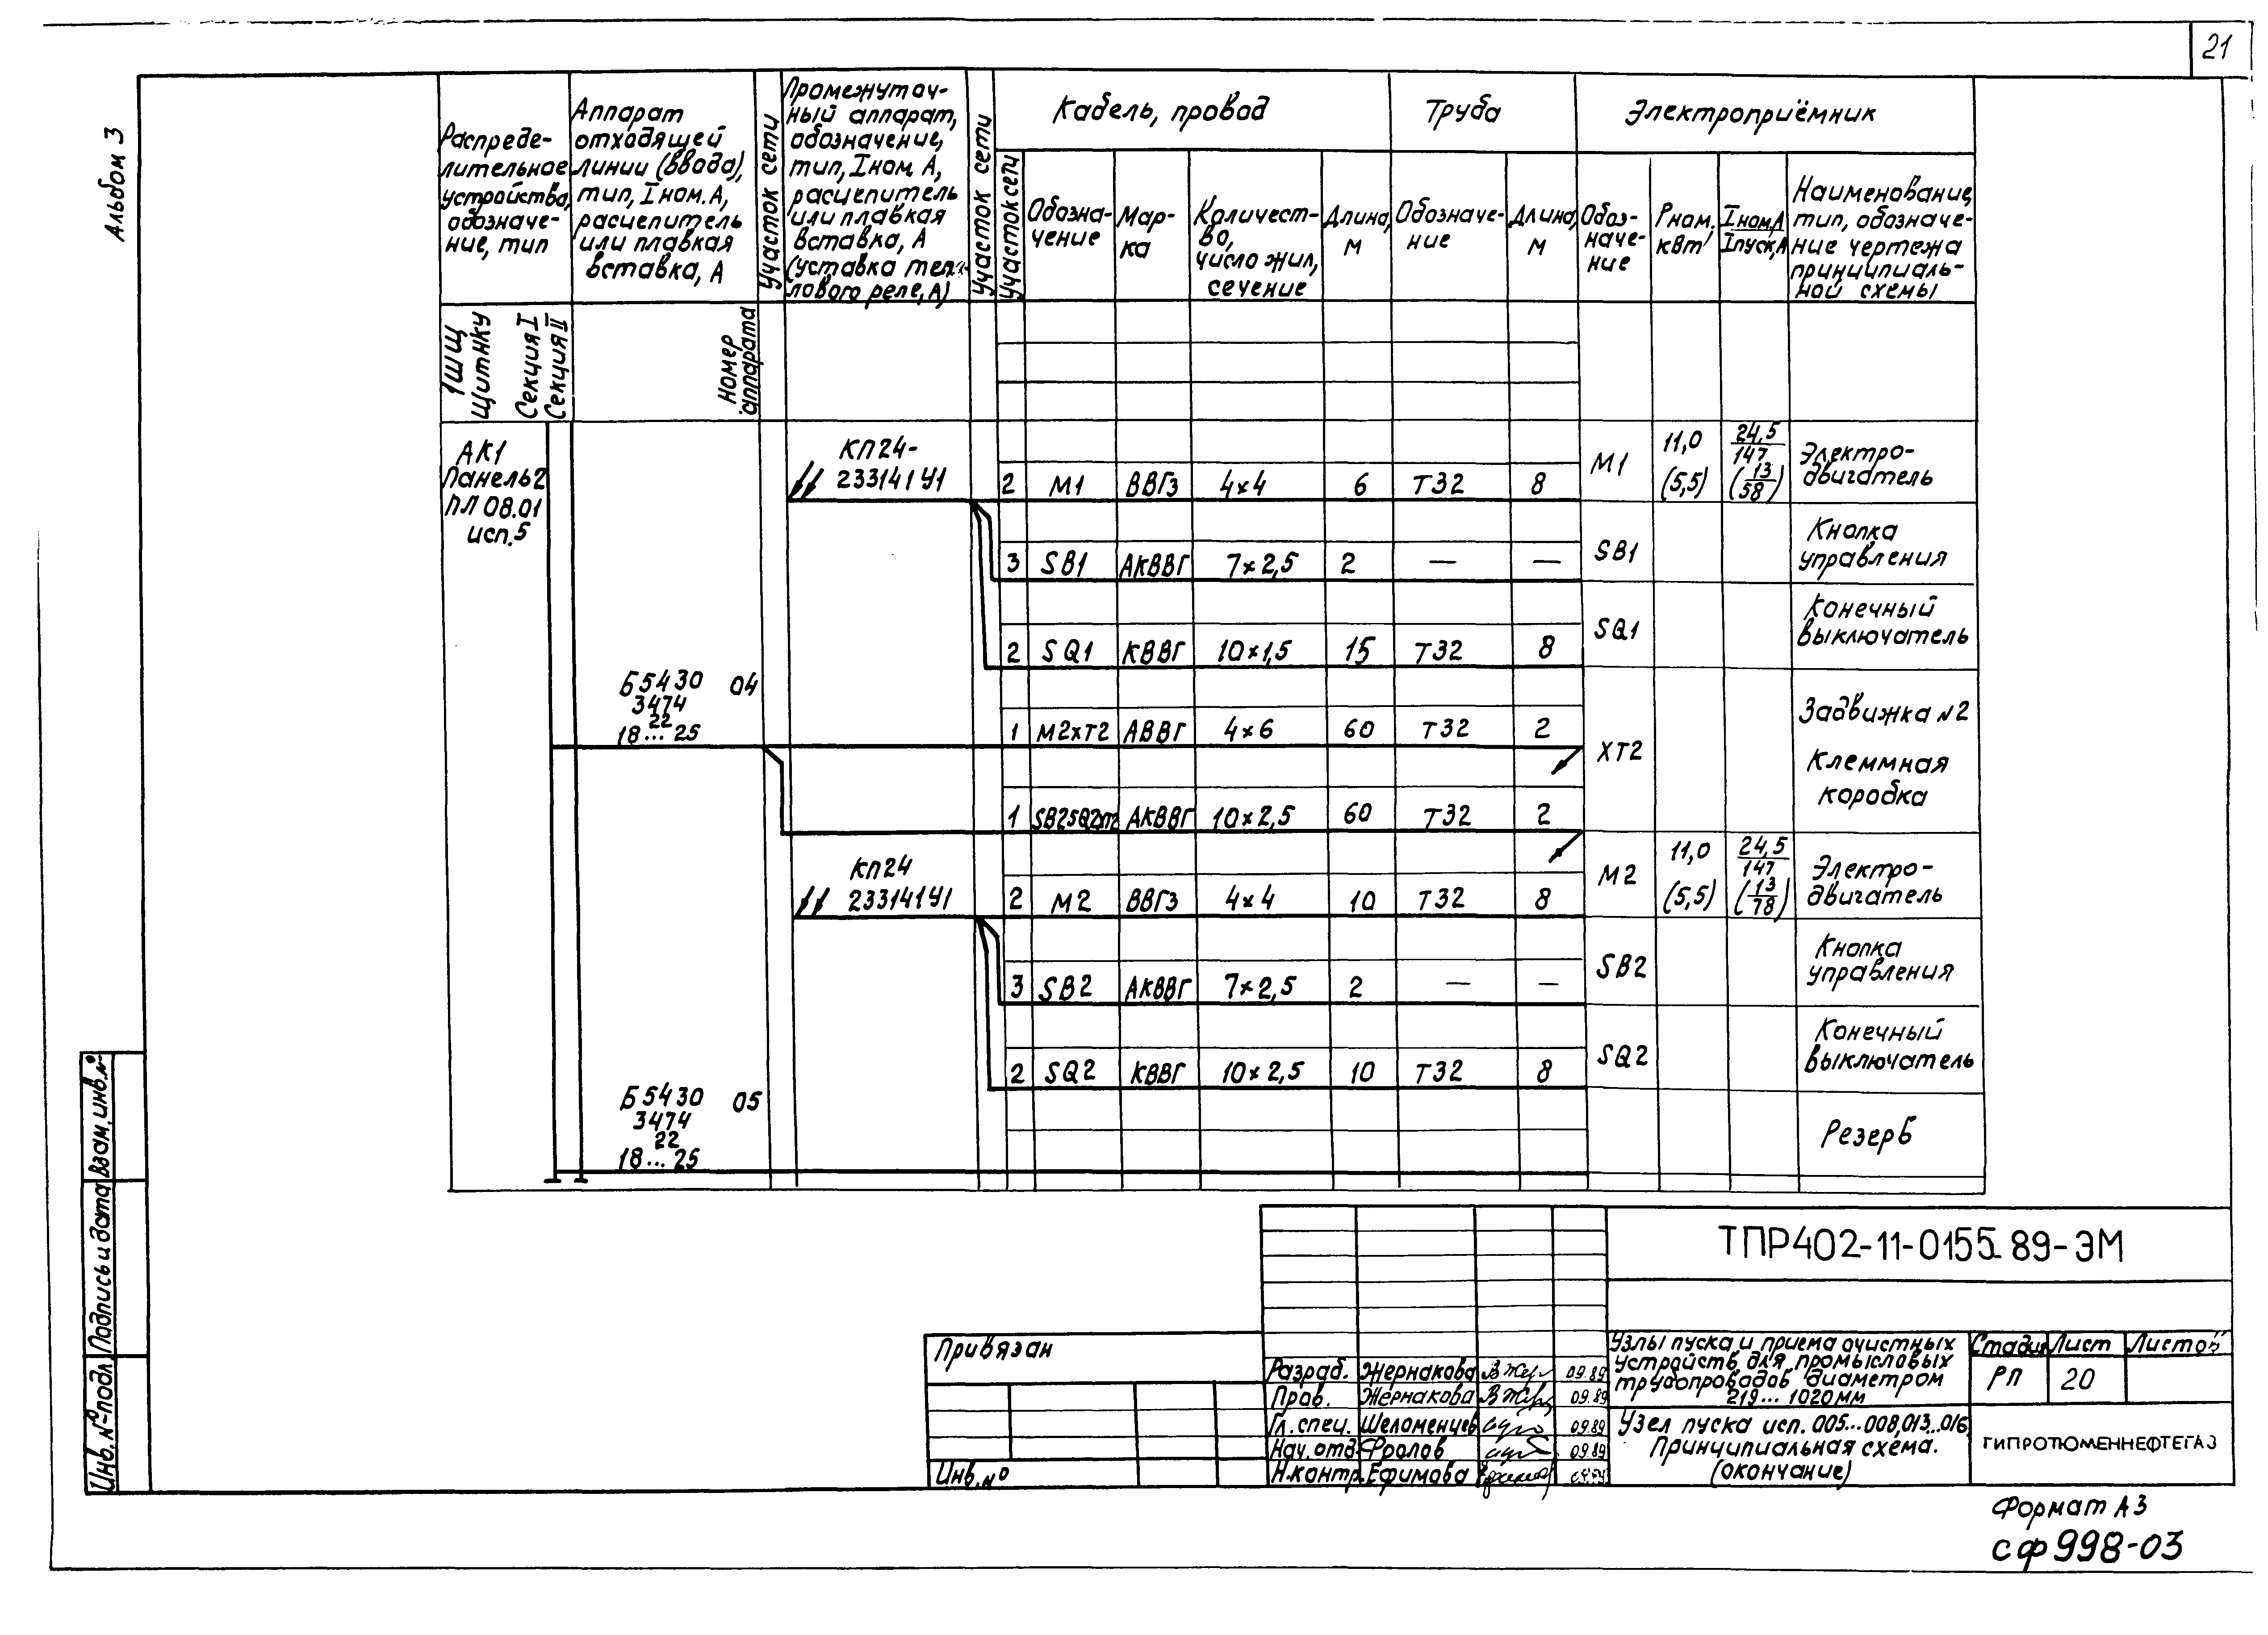 21
Альбом 3
Распреде-
лительное
устройство,
обозначе-
ние, тип
Аппарат
отходящей
линии (ввода),
тип, Iном. А,
расцепитель
или плавкая
вставка, А
Участок сети
Промежуточ-
ный аппарат,
обозначение,
тип, Iном. А,
расцепитель
или плавкая
вставка, А
(уставка теп-
лового реле, А)
Участок сети
Участок сети
Кабель, провод
Обозна-
чение
Мар-
ка
Количест-
во,
число жил,
сечение
Длина,
м
Труба
Обозначе-
ние
Длина,
м
Электроприёмник
Обоз-
наче-
ние
Рном.
кВт
Iном,А
Iпуск,А
Наименование,
тип, обозначе-
ние чертежа
принципиаль-
ной схемы
1ШЩ
ЩитНКУ
Секция I
Секция II
Номер
аппарата
АК1
Панель2
ПЛ 08.01
исп.5
КП24-
233141У1
2 М1 ВВГз 4×4 6 Т32 8
М1 11,0 (5,5)
24,5
147
(13
58)
Электро-
двигатель
3 SB1 АКВВГ 7×2,5 2 — —
SB1
Кнопка
управления
2 SQ1 КВВГ 10×1,5 15 Т32 8
SQ1
Конечный
выключатель
Б5430 04
3474
22
18...25
1 М2ХТ2 АВВГ 4×6 60 Т32 2
ХТ2
Задвижка №2
Клеммная
коробка
1 АКВВГ 10×2,5 60 Т32 2
КП24
233141У1
2 М2 ВВГз 4×4 10 Т32 8
М2 11,0 (5,5)
24,5
147
(13
78)
Электро-
двигатель
3 SB2 АКВВГ 7×2,5 2 — —
SB2
Кнопка
управления
2 SQ2 КВВГ 10×2,5 10 Т32 8
SQ2
Конечный
выключатель
Б5430 05
3474
22
18...25
Резерв
Взам. инв. №
Подпись и дата
Инв. № подл
ТПР402-11-0155.89-ЭМ
Привязан
Инв. №
Разраб. Жернакова 09.89
Пров. Жернакова 09.89
Гл. спец. Шеломенцев 09.89
Нач. отд Фролов 09.89
Н.контр. Ефимова
Узлы пуска и приема очистных
устройств для промысловых
трубопроводов диаметром
219... 1020 мм
Стадия Лист Листов
РП 20
Узел пуска исп. 005...008,013...016
Принципиальная схема.
(окончание)
ГИПРОТЮМЕННЕФТЕГАЗ
Формат А3
СФ 998-03